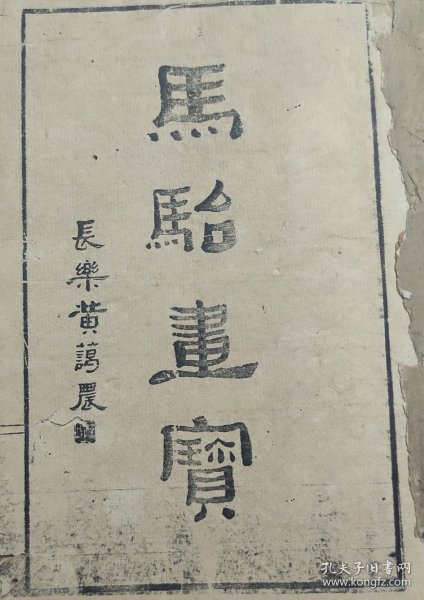 馬駘畫寶
長樂黃藹農
孔夫子旧书网
www.kongfz.com